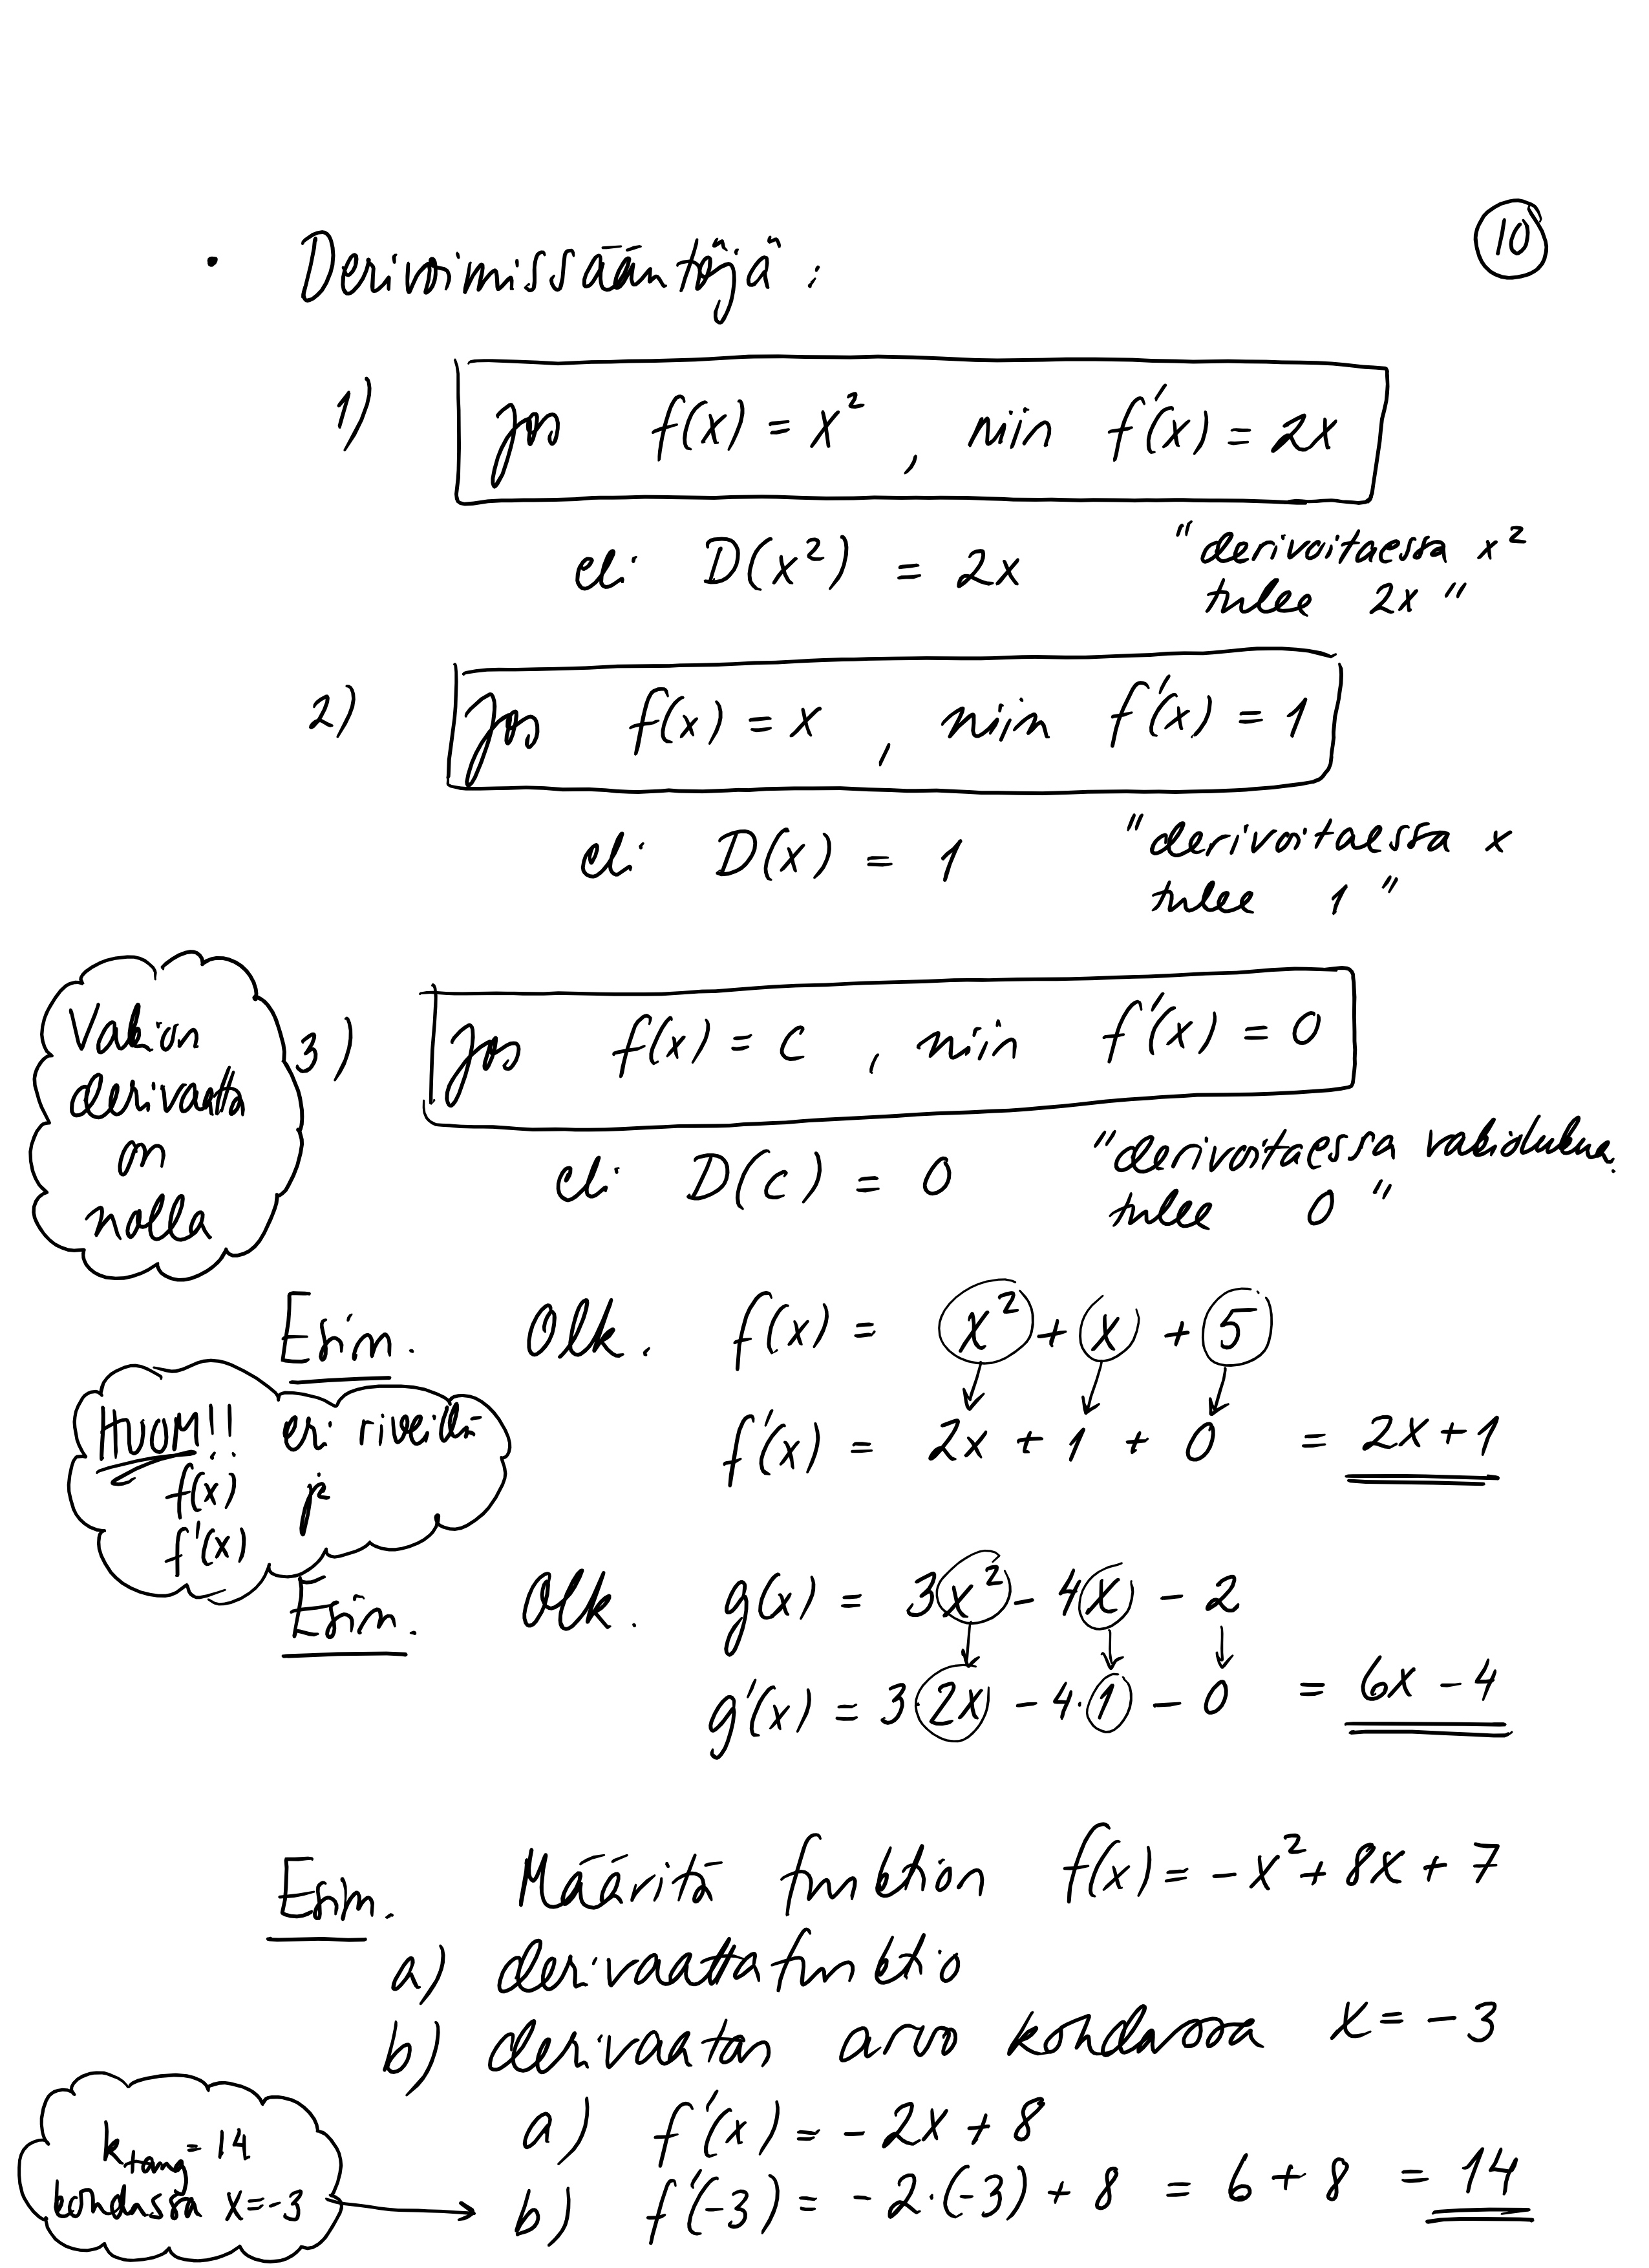 10
• Derivoimissääntöjä :
1) Jos f(x) = x², niin f'(x) = 2x
eli D(x²) = 2x "derivoitaessa x²
tulee 2x"
2) Jos f(x) = x, niin f'(x) = 1
eli D(x) = 1 "derivoitaessa x
tulee 1"
Vakion
derivaatta
on
nolla
3) Jos f(x) = c, niin f'(x) = 0
eli D(c) = 0 "derivoitaessa vakiolukua
tulee 0"
Esim. Olk. f(x) = x² + x + 5
f'(x) = 2x + 1 + 0 = 2x + 1
HUOM!! eri riveillä
f(x) ja
f'(x)
Esim. Olk. g(x) = 3x² - 4x - 2
g'(x) = 3·2x - 4·1 - 0 = 6x - 4
Esim. Määritä funktion f(x) = -x² + 8x + 7
a) derivaattafunktio
b) derivaatan arvo kohdassa x = -3
a) f'(x) = -2x + 8
k_tang = 14
kohdassa x = -3
b) f'(-3) = -2·(-3) + 8 = 6 + 8 = 14